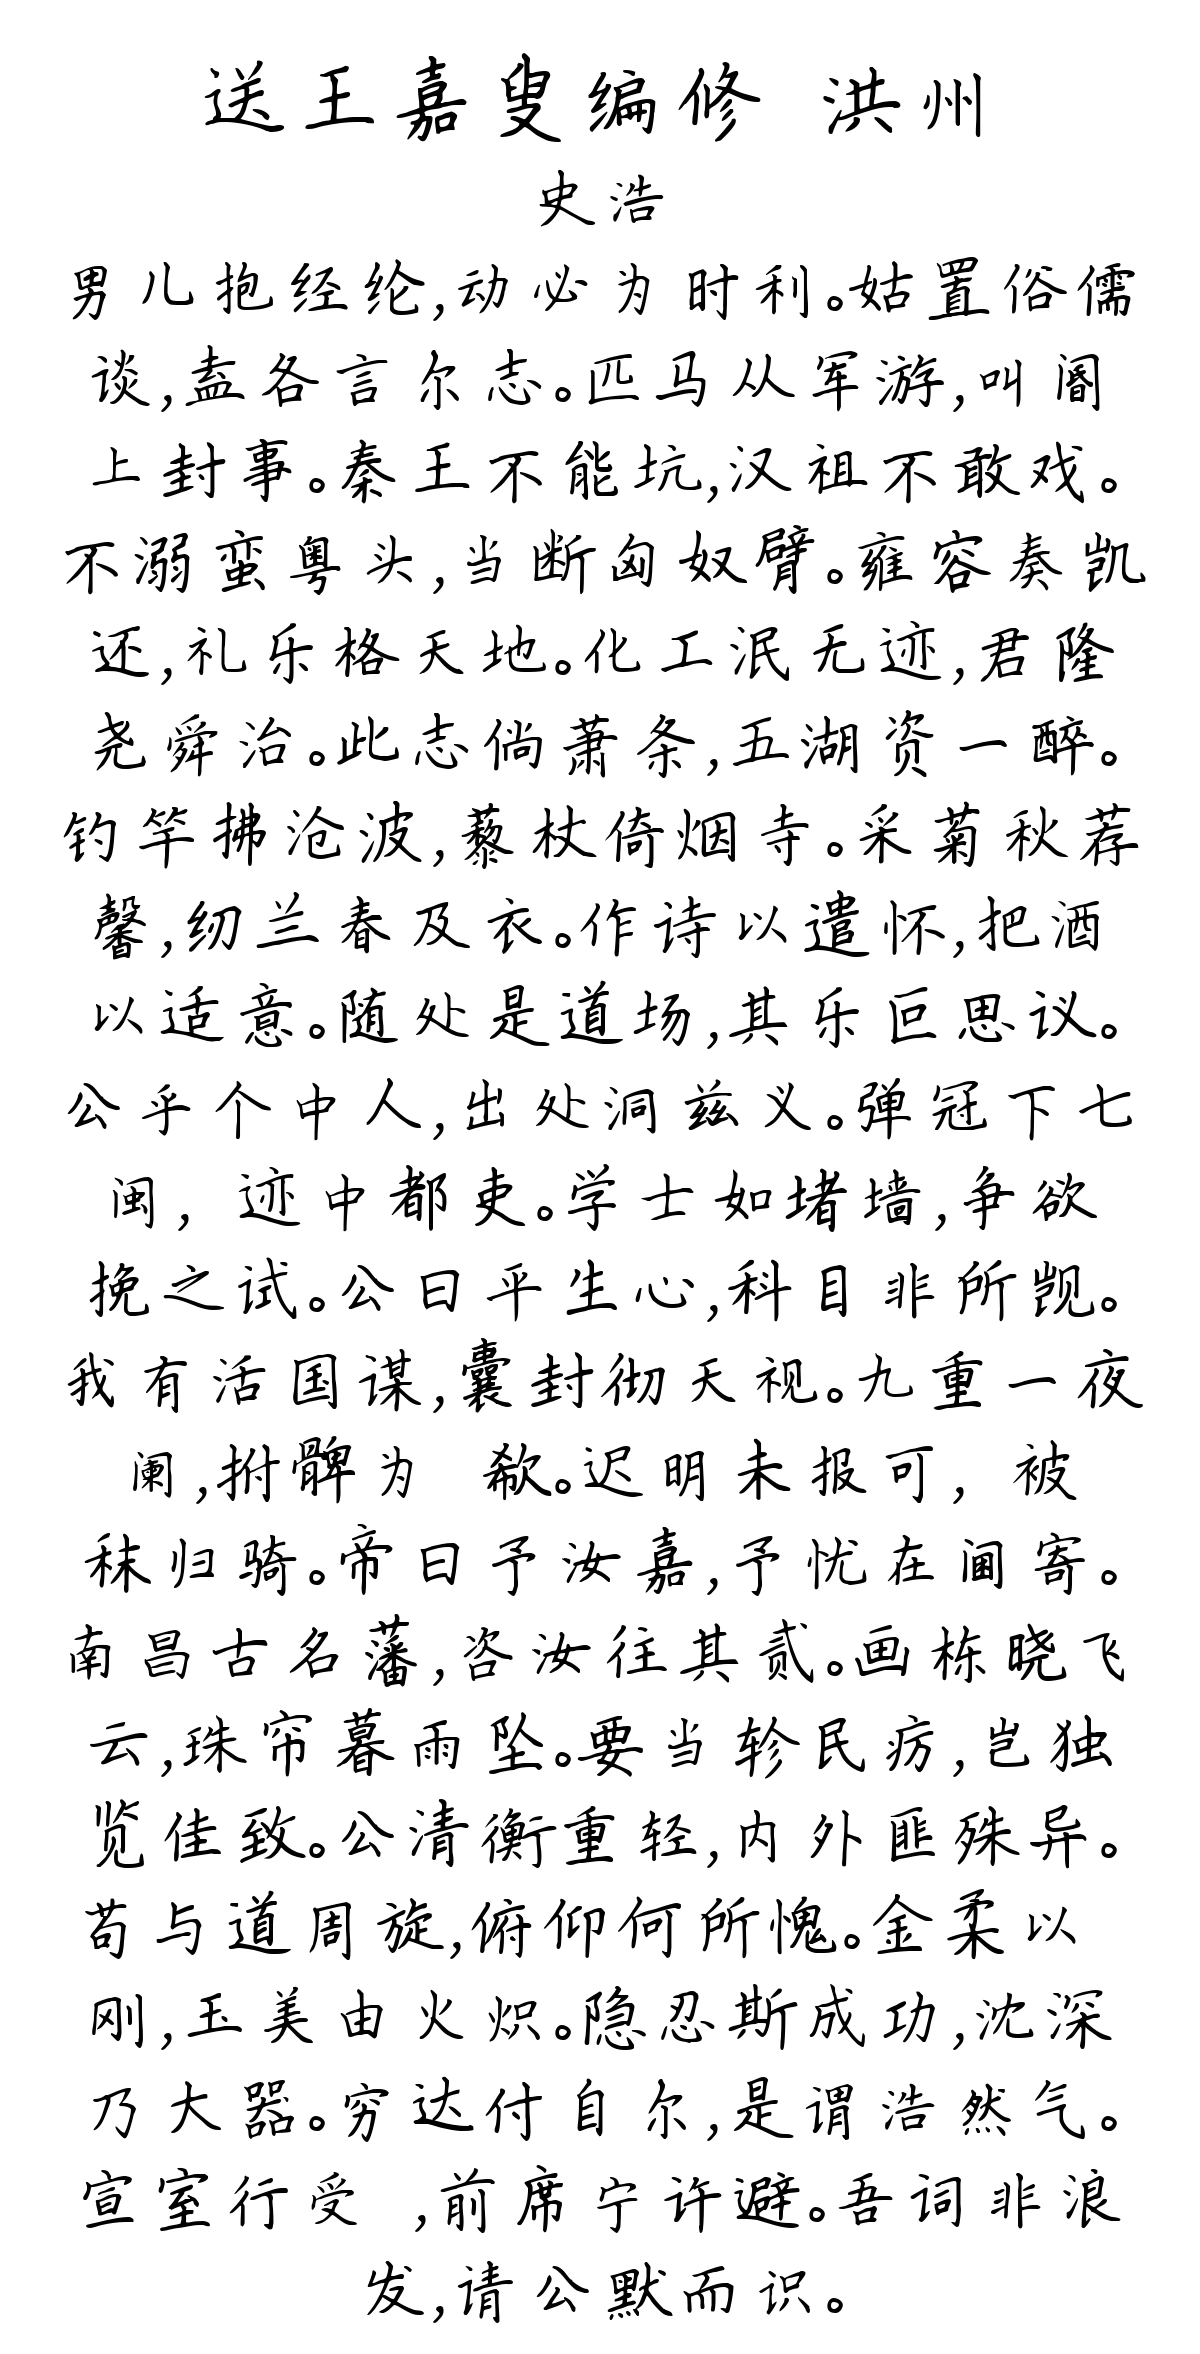 送王嘉叟编修 洪州
史浩
男儿抱经纶,动必为时利。姑置俗儒
谈,盍各言尔志。匹马从军游,叫阍
上封事。秦王不能坑,汉祖不敢戏。
不溺蛮粤头,当断匈奴臂。雍容奏凯
还,礼乐格天地。化工泯无迹,君隆
尧舜治。此志倘萧条,五湖资一醉。
钓竿拂沧波,藜杖倚烟寺。采菊秋荐
馨,纫兰春及衣。作诗以遣怀,把酒
以适意。随处是道场,其乐叵思议。
公乎个中人,出处洞兹义。弹冠下七
闽, 迹中都吏。学士如堵墙,争欲
挽之试。公曰平生心,科目非所觊。
我有活国谋,囊封彻天视。九重一夜
阑,拊髀为 欷。迟明未报可, 被
秣归骑。帝曰予汝嘉,予忧在阃寄。
南昌古名藩,咨汝往其贰。画栋晓飞
云,珠帘暮雨坠。要当轸民疠,岂独
览佳致。公清衡重轻,内外匪殊异。
苟与道周旋,俯仰何所愧。金柔以
刚,玉美由火炽。隐忍斯成功,沈深
乃大器。穷达付自尔,是谓浩然气。
宣室行受 ,前席宁许避。吾词非浪
发,请公默而识。